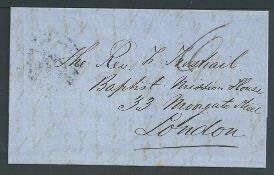 The Rev. F. Trestrail
Baptist Mission House
33 Moorgate Street
London